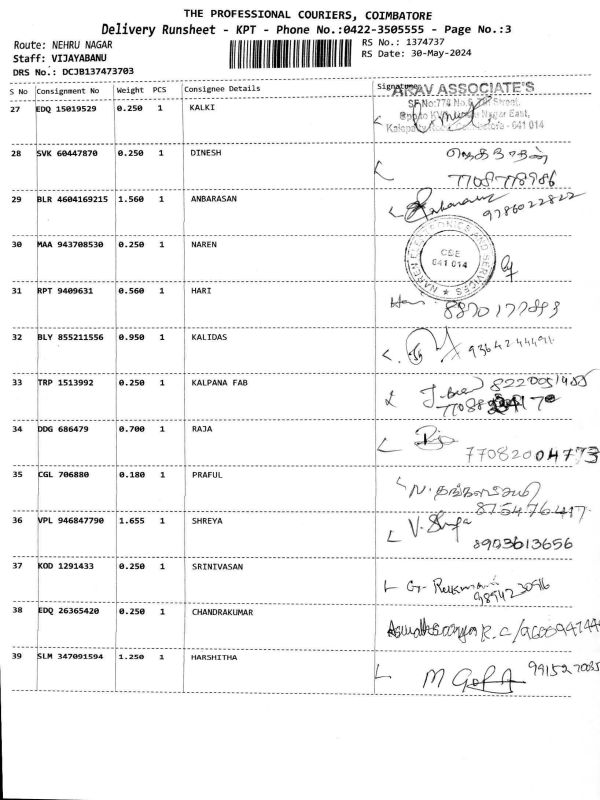 THE PROFESSIONAL COURIERS, COIMBATORE
Delivery Runsheet - KPT - Phone No.:0422-3505555 - Page No.:3
Route: NEHRU NAGAR
RS No.: 1374737
Staff: VIJAYABANU
RS Date: 30-May-2024
DRS No.: DCJB137473703
S No Consignment No Weight PCS Consignee Details Signature
ARAV ASSOCIATE'S
27 EDQ 15019529 0.250 1 KALKI
641 014
28 SVK 60447870 0.250 1 DINESH
7708778986
29 BLR 4604169215 1.560 1 ANBARASAN
9786022822
30 MAA 943708530 0.250 1 NAREN
NAREN ELECTRONICS AND SERVICES
CBE
641 014
31 RPT 9409631 0.560 1 HARI
Hari
32 BLY 855211556 0.950 1 KALIDAS
33 TRP 1513992 0.250 1 KALPANA FAB
34 DDG 686479 0.700 1 RAJA
77082004773
35 CGL 706880 0.180 1 PRAFUL
8754776417
36 VPL 946847790 1.655 1 SHREYA
8903613656
37 KOD 1291433 0.250 1 SRINIVASAN
38 EDQ 26365420 0.250 1 CHANDRAKUMAR
39 SLM 347091594 1.250 1 HARSHITHA